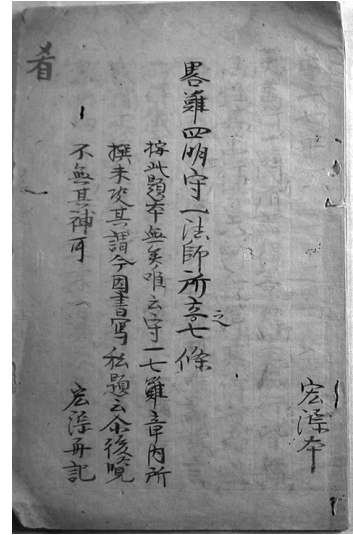 宏濴本
畧難四明守一法師所立之七條
按此題本無矣唯云守一七難章内所
撰未決其謂今因書寫私題云尒後覽
不無其補耳
宏濴再記